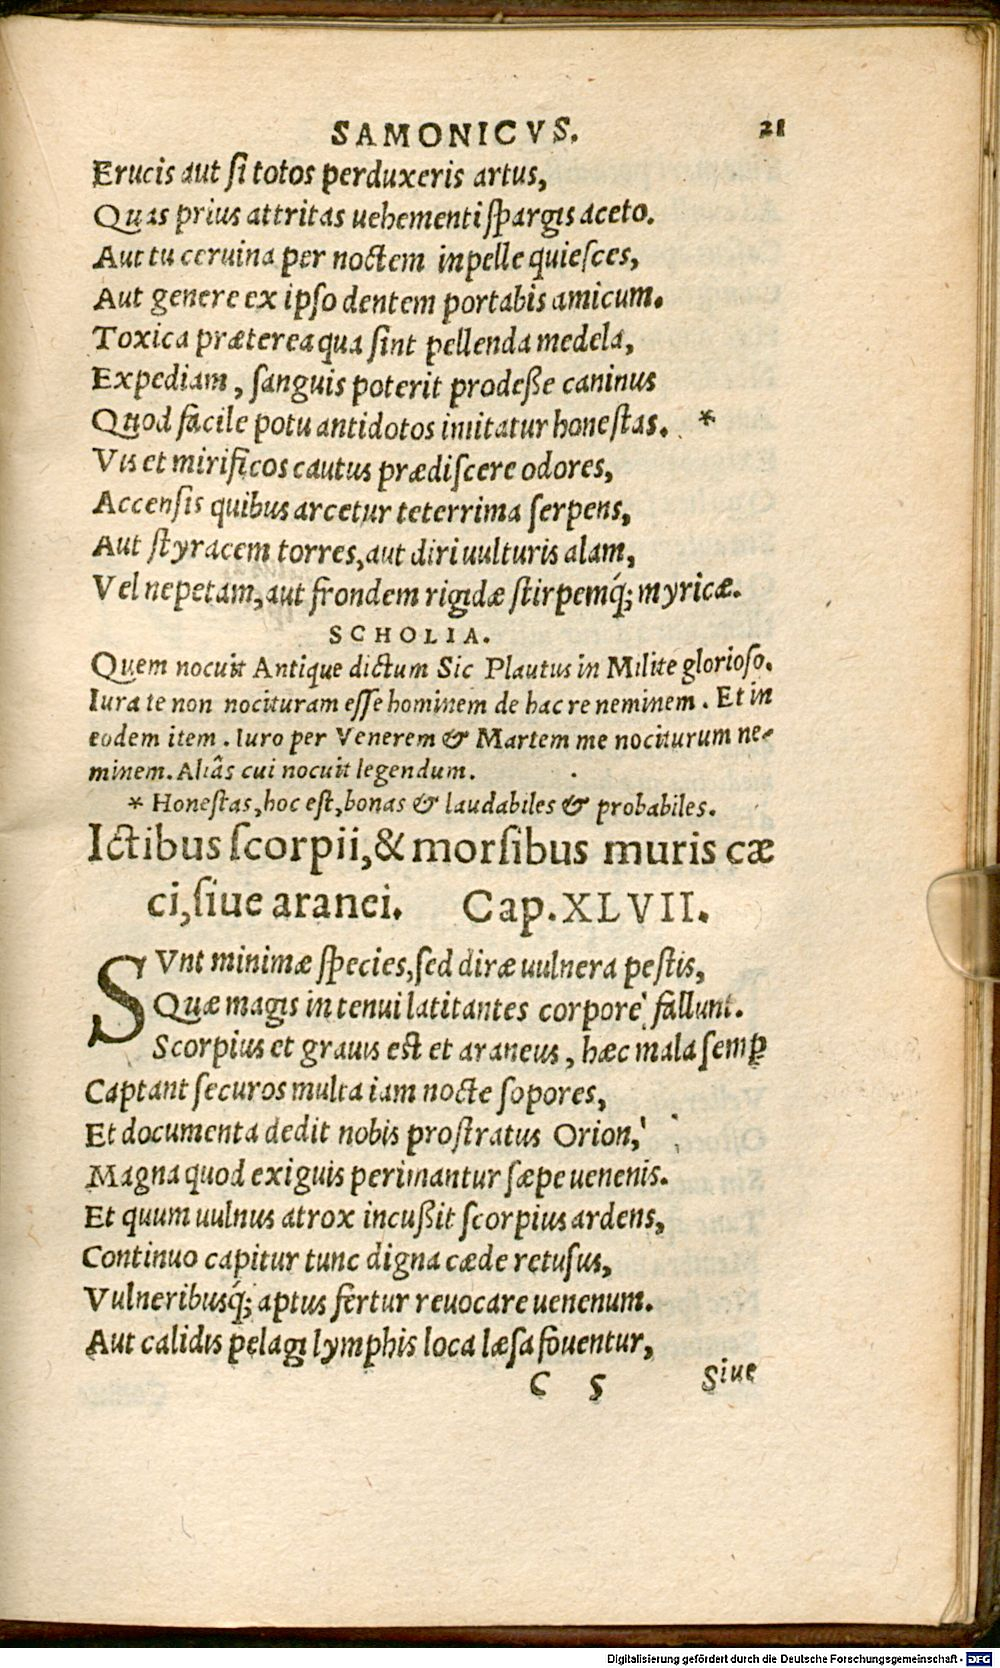 SAMONICVS. 21
Erucis aut ſi totos perduxeris artus,
Quas prius attritas uehementi ſpargis aceto.
Aut tu ceruina per noctem in pelle quieſces,
Aut genere ex ipſo dentem portabis amicum.
Toxica præterea qua ſint pellenda medela,
Expediam, ſanguis poterit prodeße caninus
Quod facile potu antidotos imitatur honeſtas. *
Vis et mirificos cautus prædiſcere odores,
Accenſis quibus arcetur teterrima ſerpens,
Aut ſtyracem torres, aut diri uulturis alam,
Vel nepetam, aut frondem rigidæ ſtirpemq́; myricæ.
SCHOLIA.
Quem nocuit Antique dictum Sic Plautus in Milite glorioſo.
Iura te non nocituram eſſe hominem de hac re neminem. Et in
eodem item. Iuro per Venerem & Martem me nociturum ne-
minem. Aliâs cui nocuit legendum.
* Honeſtas, hoc eſt, bonas & laudabiles & probabiles.
Ictibus ſcorpii, & morſibus muris cæ
ci, ſiue aranei. Cap. XLVII.
SVnt minimæ ſpecies, ſed diræ uulnera peſtis,
Quæ magis in tenui latitantes corpore fallunt.
Scorpius et grauis eſt et araneus, hæc mala ſemꝑ
Captant ſecuros multa iam nocte ſopores,
Et documenta dedit nobis proſtratus Orion,
Magna quod exiguis perimantur ſæpe uenenis.
Et quum uulnus atrox incußit ſcorpius ardens,
Continuo capitur tunc digna cæde retuſus,
Vulneribusq́; aptus fertur reuocare uenenum.
Aut calidis pelagi lymphis loca læſa fouentur,
C 5 Siue
Digitalisierung gefördert durch die Deutsche Forschungsgemeinschaft - DFG